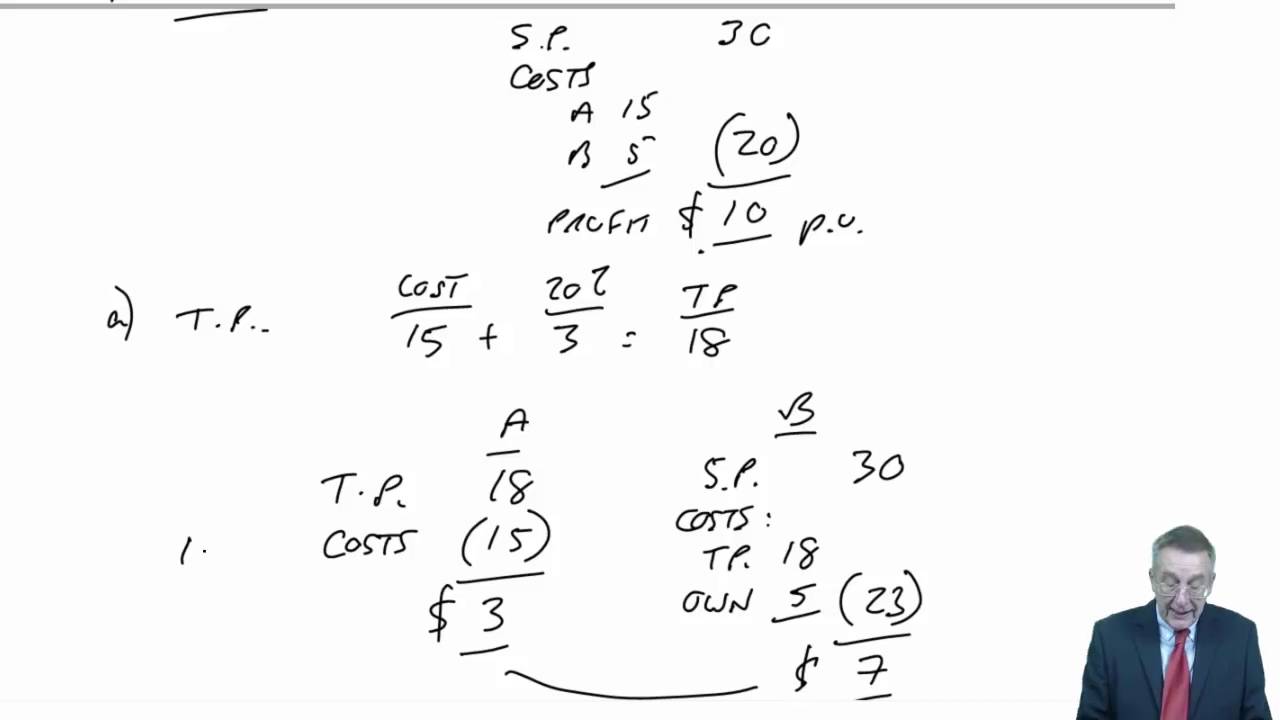 S.P. 30
COSTS
A 15
B 5 (20)
PROFIT $ 10 p.u.
a) T.P.. COST 20% TP
15 + 3 = 18
A B
T.P. 18 S.P. 30
COSTS (15) COSTS:
1. TP. 18
$ 3 OWN 5 (23)
$ 7